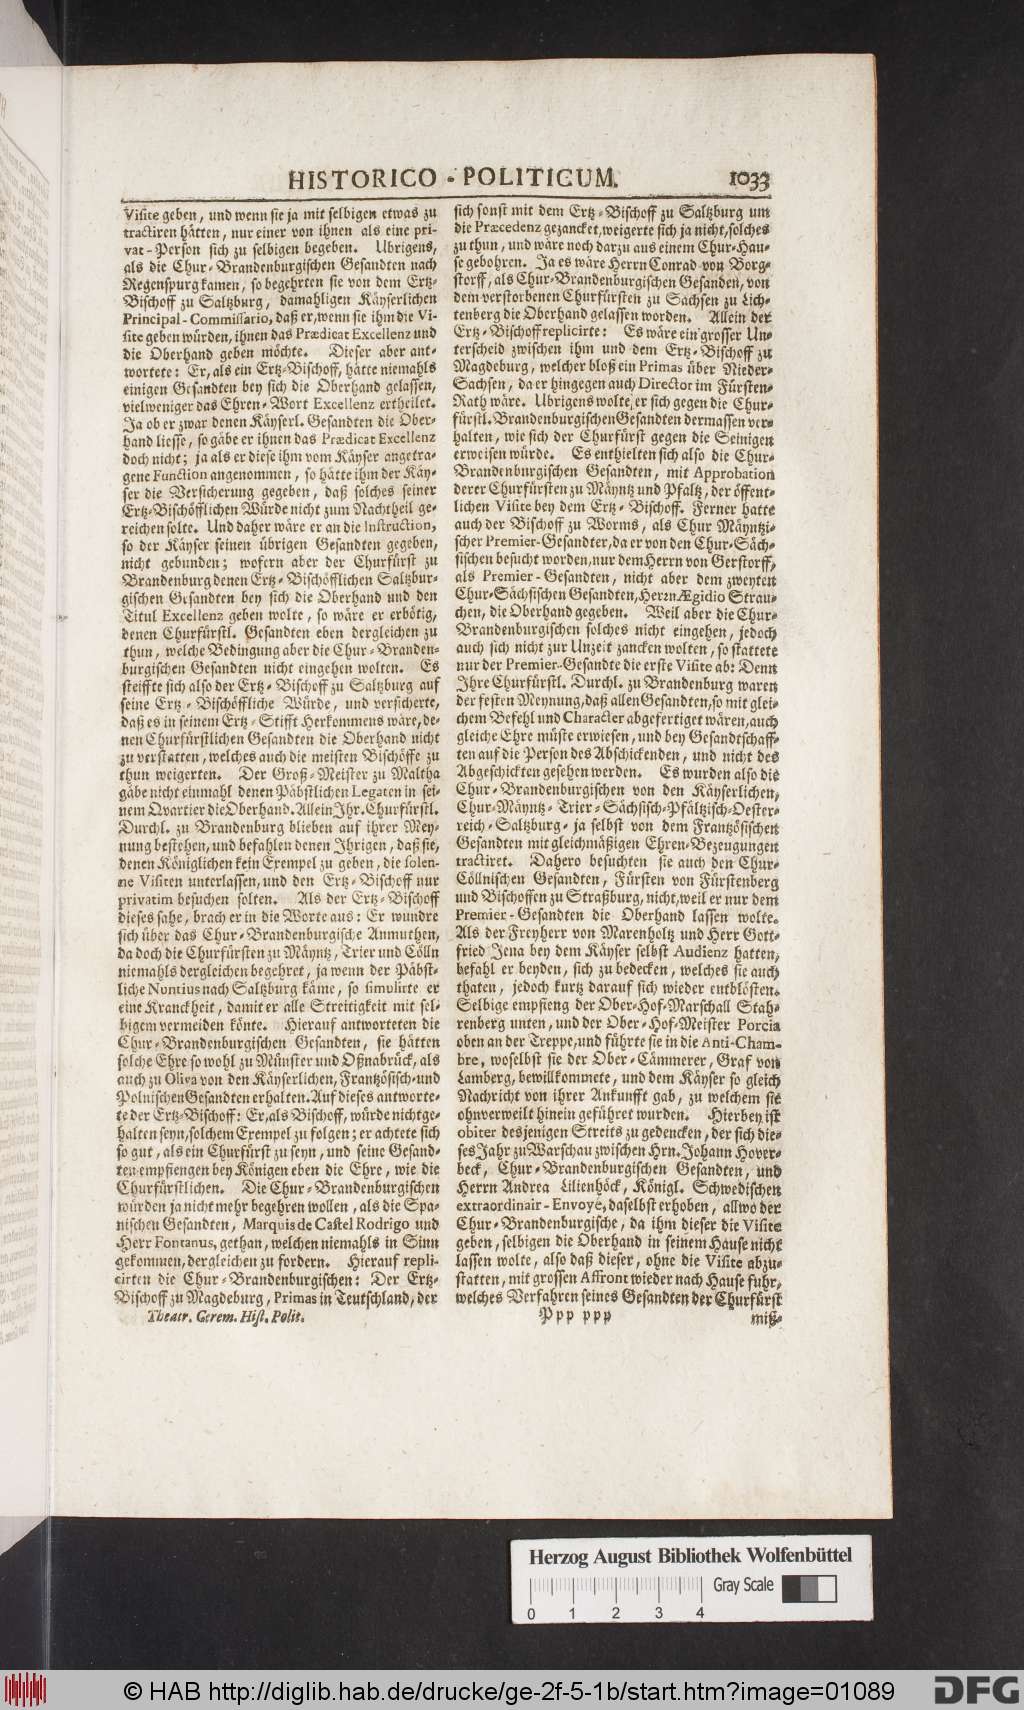 HISTORICO-POLITICUM. 1033
Visite geben, und wenn sie ja mit selbigen etwas zu
tractiren hätten, nur einer von ihnen als eine pri-
vat-Person sich zu selbigen begeben. Ubrigens,
als die Chur-Brandenburgischen Gesandten nach
Regenspurg kamen, so begehrten sie von dem Ertz-
Bischoff zu Saltzburg, damahligen Käyserlichen
Principal-Commissario, daß er, wenn sie ihm die Vi-
site geben würden, ihnen das Prædicat Excellenz und
die Oberhand geben möchte. Dieser aber ant-
wortete: Er, als ein Ertz-Bischoff, hätte niemahls
einigen Gesandten bey sich die Oberhand gelassen,
vielweniger das Ehren-Wort Excellenz ertheilet.
Ja ob er zwar denen Käyserl. Gesandten die Ober-
hand liesse, so gäbe er ihnen das Prædicat Excellenz
doch nicht; ja als er diese ihm vom Käyser angetra-
gene Function angenommen, so hätte ihm der Käy-
ser die Versicherung gegeben, daß solches seiner
Ertz-Bischöfflichen Würde nicht zum Nachtheil ge-
reichen solte. Und daher wäre er an die Instruction,
so der Käyser seinen übrigen Gesandten gegeben,
nicht gebunden; wofern aber der Churfürst zu
Brandenburg denen Ertz-Bischöfflichen Saltzbur-
gischen Gesandten bey sich die Oberhand und den
Titul Excellenz geben wolte, so wäre er erbötig,
denen Churfürstl. Gesandten eben dergleichen zu
thun, welche Bedingung aber die Chur-Branden-
burgischen Gesandten nicht eingehen wolten. Es
steiffte sich also der Ertz-Bischoff zu Saltzburg auf
seine Ertz-Bischöffliche Würde, und versicherte,
daß es in seinem Ertz-Stifft Herkommens wäre, de-
nen Churfürstlichen Gesandten die Oberhand nicht
zu verstatten, welches auch die meisten Bischöffe zu
thun weigerten. Der Groß-Meister zu Maltha
gäbe nicht einmahl denen Päbstlichen Legaten in sei-
nem Qvartier die Oberhand. Allein Ihr. Churfürstl.
Durchl. zu Brandenburg blieben auf ihrer Mey-
nung bestehen, und befahlen denen Ihrigen, daß sie,
denen Königlichen kein Exempel zu geben, die solen-
ne Visiten unterlassen, und den Ertz-Bischoff nur
privatim besuchen solten. Als der Ertz-Bischoff
dieses sahe, brach er in die Worte aus: Er wundre
sich über das Chur-Brandenburgische Anmuthen,
da doch die Churfürsten zu Mäyntz, Trier und Cölln
niemahls dergleichen begehret, ja wenn der Päbst-
liche Nuntius nach Saltzburg käme, so simulirte er
eine Kranckheit, damit er alle Streitigkeit mit sel-
bigem vermeiden könte. Hierauf antworteten die
Chur-Brandenburgischen Gesandten, sie hätten
solche Ehre so wohl zu Münster und Oßnabrück, als
auch zu Oliva von den Käyserlichen, Frantzösisch-und
Polnischen Gesandten erhalten. Auf dieses antworte-
te der Ertz-Bischoff: Er, als Bischoff, würde nicht ge-
halten seyn, solchem Exempel zu folgen; er achtete sich
so gut, als ein Churfürst zu seyn, und seine Gesand-
ten empfiengen bey Königen eben die Ehre, wie die
Churfürstlichen. Die Chur-Brandenburgischen
würden ja nicht mehr begehren wollen, als die Spa-
nischen Gesandten, Marquis de Castel Rodrigo und
Herr Fontanus, gethan, welchen niemahls in Sinn
gekommen, dergleichen zu fordern. Hierauf repli-
cirten die Chur-Brandenburgischen: Der Ertz-
Bischoff zu Magdeburg, Primas in Teutschland, der
Theatr. Cerem. Hist. Polit.
sich sonst mit dem Ertz-Bischoff zu Saltzburg um
die Præcedenz gezancket, weigerte sich ja nicht, solches
zu thun, und wäre noch darzu aus einem Chur-Hau-
se gebohren. Ja es wäre Herrn Conrad von Borg-
storff, als Chur-Brandenburgischen Gesanden, von
dem verstorbenen Churfürsten zu Sachsen zu Lich-
tenberg die Oberhand gelassen worden. Allein der
Ertz-Bischoff replicirte: Es wäre ein grosser Un-
terscheid zwischen ihm und dem Ertz-Bischoff zu
Magdeburg, welcher bloß ein Primas über Nieder-
Sachsen, da er hingegen auch Director im Fürsten-
Rath wäre. Ubrigens wolte er sich gegen die Chur-
fürstl. Brandenburgischen Gesandten dermassen ver-
halten, wie sich der Churfürst gegen die Seinigen
erweisen würde. Es enthielten sich also die Chur-
Brandenburgischen Gesandten, mit Approbation
derer Churfürsten zu Mäyntz und Pfaltz, der öffent-
lichen Visite bey dem Ertz-Bischoff. Ferner hatte
auch der Bischoff zu Worms, als Chur Mäyntzi-
scher Premier-Gesandter, da er von den Chur-Säch-
sischen besucht worden, nur dem Herrn von Gerstorff,
als Premier-Gesandten, nicht aber dem zweyten
Chur-Sächsischen Gesandten, Herrn Ægidio Strau-
chen, die Oberhand gegeben. Weil aber die Chur-
Brandenburgischen solches nicht eingehen, jedoch
auch sich nicht zur Unzeit zancken wolten, so stattete
nur der Premier-Gesandte die erste Visite ab: Denn
Ihre Churfürstl. Durchl. zu Brandenburg waren
der festen Meynung, daß allen Gesandten, so mit glei-
chem Befehl und Character abgefertiget wären, auch
gleiche Ehre müste erwiesen, und bey Gesandtschaff-
ten auf die Person des Abschickenden, und nicht des
Abgeschickten gesehen werden. Es wurden also die
Chur-Brandenburgischen von den Käyserlichen,
Chur-Mäyntz-Trier-Sächsisch-Pfältzisch-Oester-
reich-Saltzburg-ja selbst von dem Frantzösischen
Gesandten mit gleichmäßigen Ehren-Bezeugungen
tractiret. Dahero besuchten sie auch den Chur-
Cöllnischen Gesandten, Fürsten von Fürstenberg
und Bischoffen zu Straßburg, nicht, weil er nur dem
Premier-Gesandten die Oberhand lassen wolte.
Als der Freyherr von Marenholtz und Herr Gott-
fried Jena bey dem Käyser selbst Audienz hatten,
befahl er beyden, sich zu bedecken, welches sie auch
thaten, jedoch kurtz darauf sich wieder entblösten.
Selbige empfieng der Ober-Hof-Marschall Stah-
renberg unten, und der Ober-Hof-Meister Porcia
oben an der Treppe, und führte sie in die Anti-Cham-
bre, woselbst sie der Ober-Cämmerer, Graf von
Lamberg, bewillkommete, und dem Käyser so gleich
Nachricht von ihrer Ankunfft gab, zu welchem sie
ohnverweilt hinein geführet wurden. Hierbey ist
obiter desjenigen Streits zu gedencken, der sich die-
ses Jahr zu Warschau zwischen Hrn. Johann Hover-
beck, Chur-Brandenburgischen Gesandten, und
Herrn Andrea Lilienhöck, Königl. Schwedischen
extraordinair-Envoyé, daselbst erhoben, allwo der
Chur-Brandenburgische, da ihm dieser die Visite
geben, selbigen die Oberhand in seinem Hause nicht
lassen wolte, also daß dieser, ohne die Visite abzu-
statten, mit grossen Affront wieder nach Hause fuhr,
welches Verfahren seines Gesandten der Churfürst
Ppp ppp miß-
Herzog August Bibliothek Wolfenbüttel
Gray Scale
0 1 2 3 4
© HAB http://diglib.hab.de/drucke/ge-2f-5-1b/start.htm?image=01089
DFG